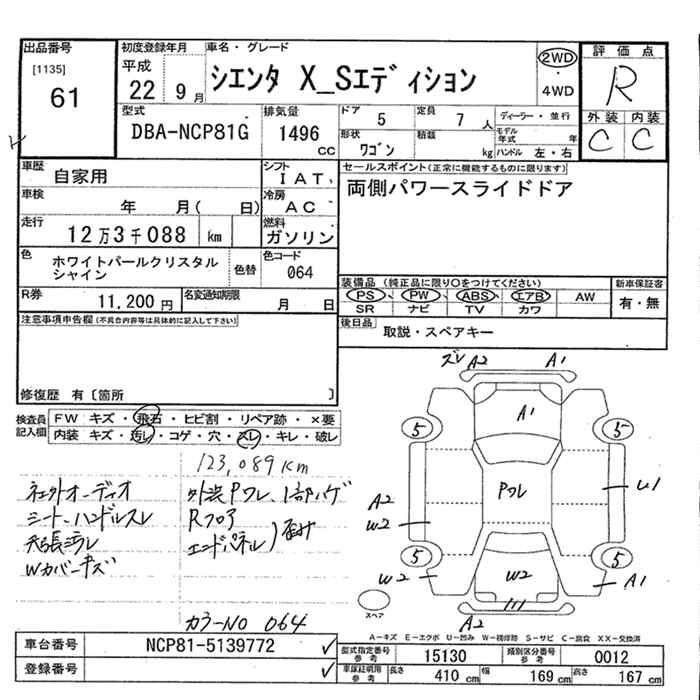 出品番号
[1135]
61
初度登録年月
平成
22 9月
車名・グレード
シエンタ X_Sエディション
2WD
・
4WD
評価点
R
外装 内装
C C
型式
DBA-NCP81G
排気量
1496
cc
ドア
5
定員
7 人
ディーラー・並行
モデル年式 年
形状
ワゴン
積載
kg
ハンドル 左・右
車歴
自家用
シフト
IAT
セールスポイント(正常に機能するものに限ります)
両側パワースライドドア
車検
年 月( 日)
冷房
AC
走行
12万3千088 km
燃料
ガソリン
色
ホワイトパールクリスタル
シャイン
色替
色コード
064
装備品 (純正品に限り○をつけてください)
PS PW ABS エアB AW
SR ナビ TV カワ
新車保証書
有・無
R券
11,200円
名変通知期限
月 日
後日品
取説・スペアキー
注意事項申告欄(不具合内容等は具体的に記入して下さい)
修復歴 有〔箇所 〕
検査員
記入欄
FW キズ・飛石・ヒビ割・リペア跡・×要
内装 キズ・汚レ・コゲ・穴・スレ・キレ・破レ
123,089km
オーディオ
シート、ハンドルスレ
天張汚レ
Wカバーキズ
外装Pワレ、1部ハゲ
Rフロア
エンドパネル
カラーNO 064
ズレ A2 A1
A1
5 5
Pワレ
U1
A2
W2
5 5
W2
W2
A1
A2
スペア
A-キズ E-エクボ U-凹み W-補修跡 S-サビ C-腐食 XX-交換済
車台番号
NCP81-5139772
登録番号
型式指定番号
参考
15130
類別区分番号
参考
0012
車庫証明用
参考
長さ 410 cm 幅 169 cm 高さ 167 cm